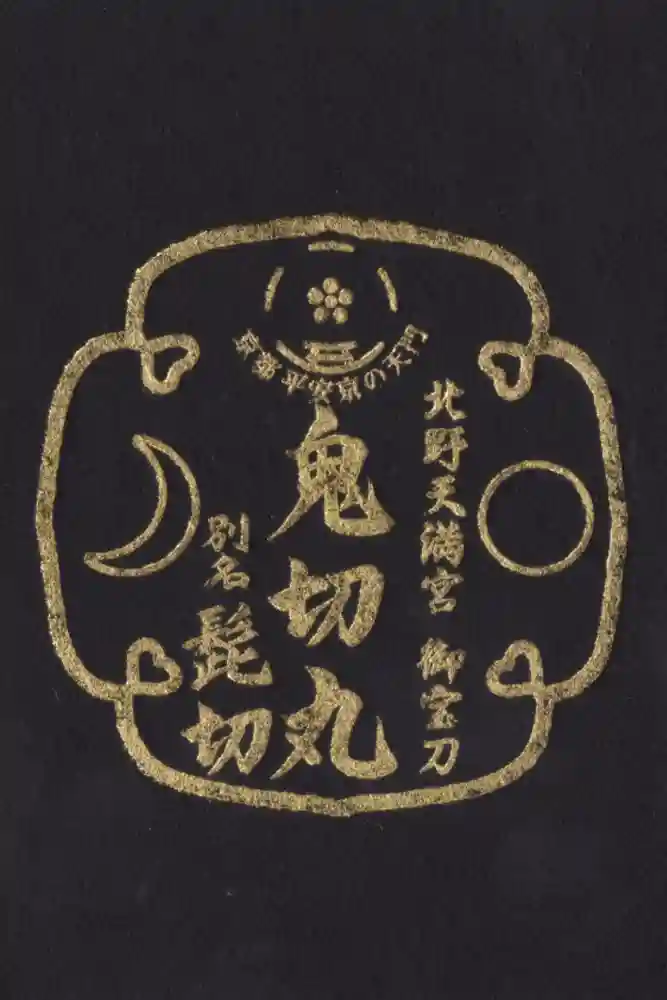 京都平安京の天門
北野天満宮 御宝刀
鬼切丸
別名 髭切